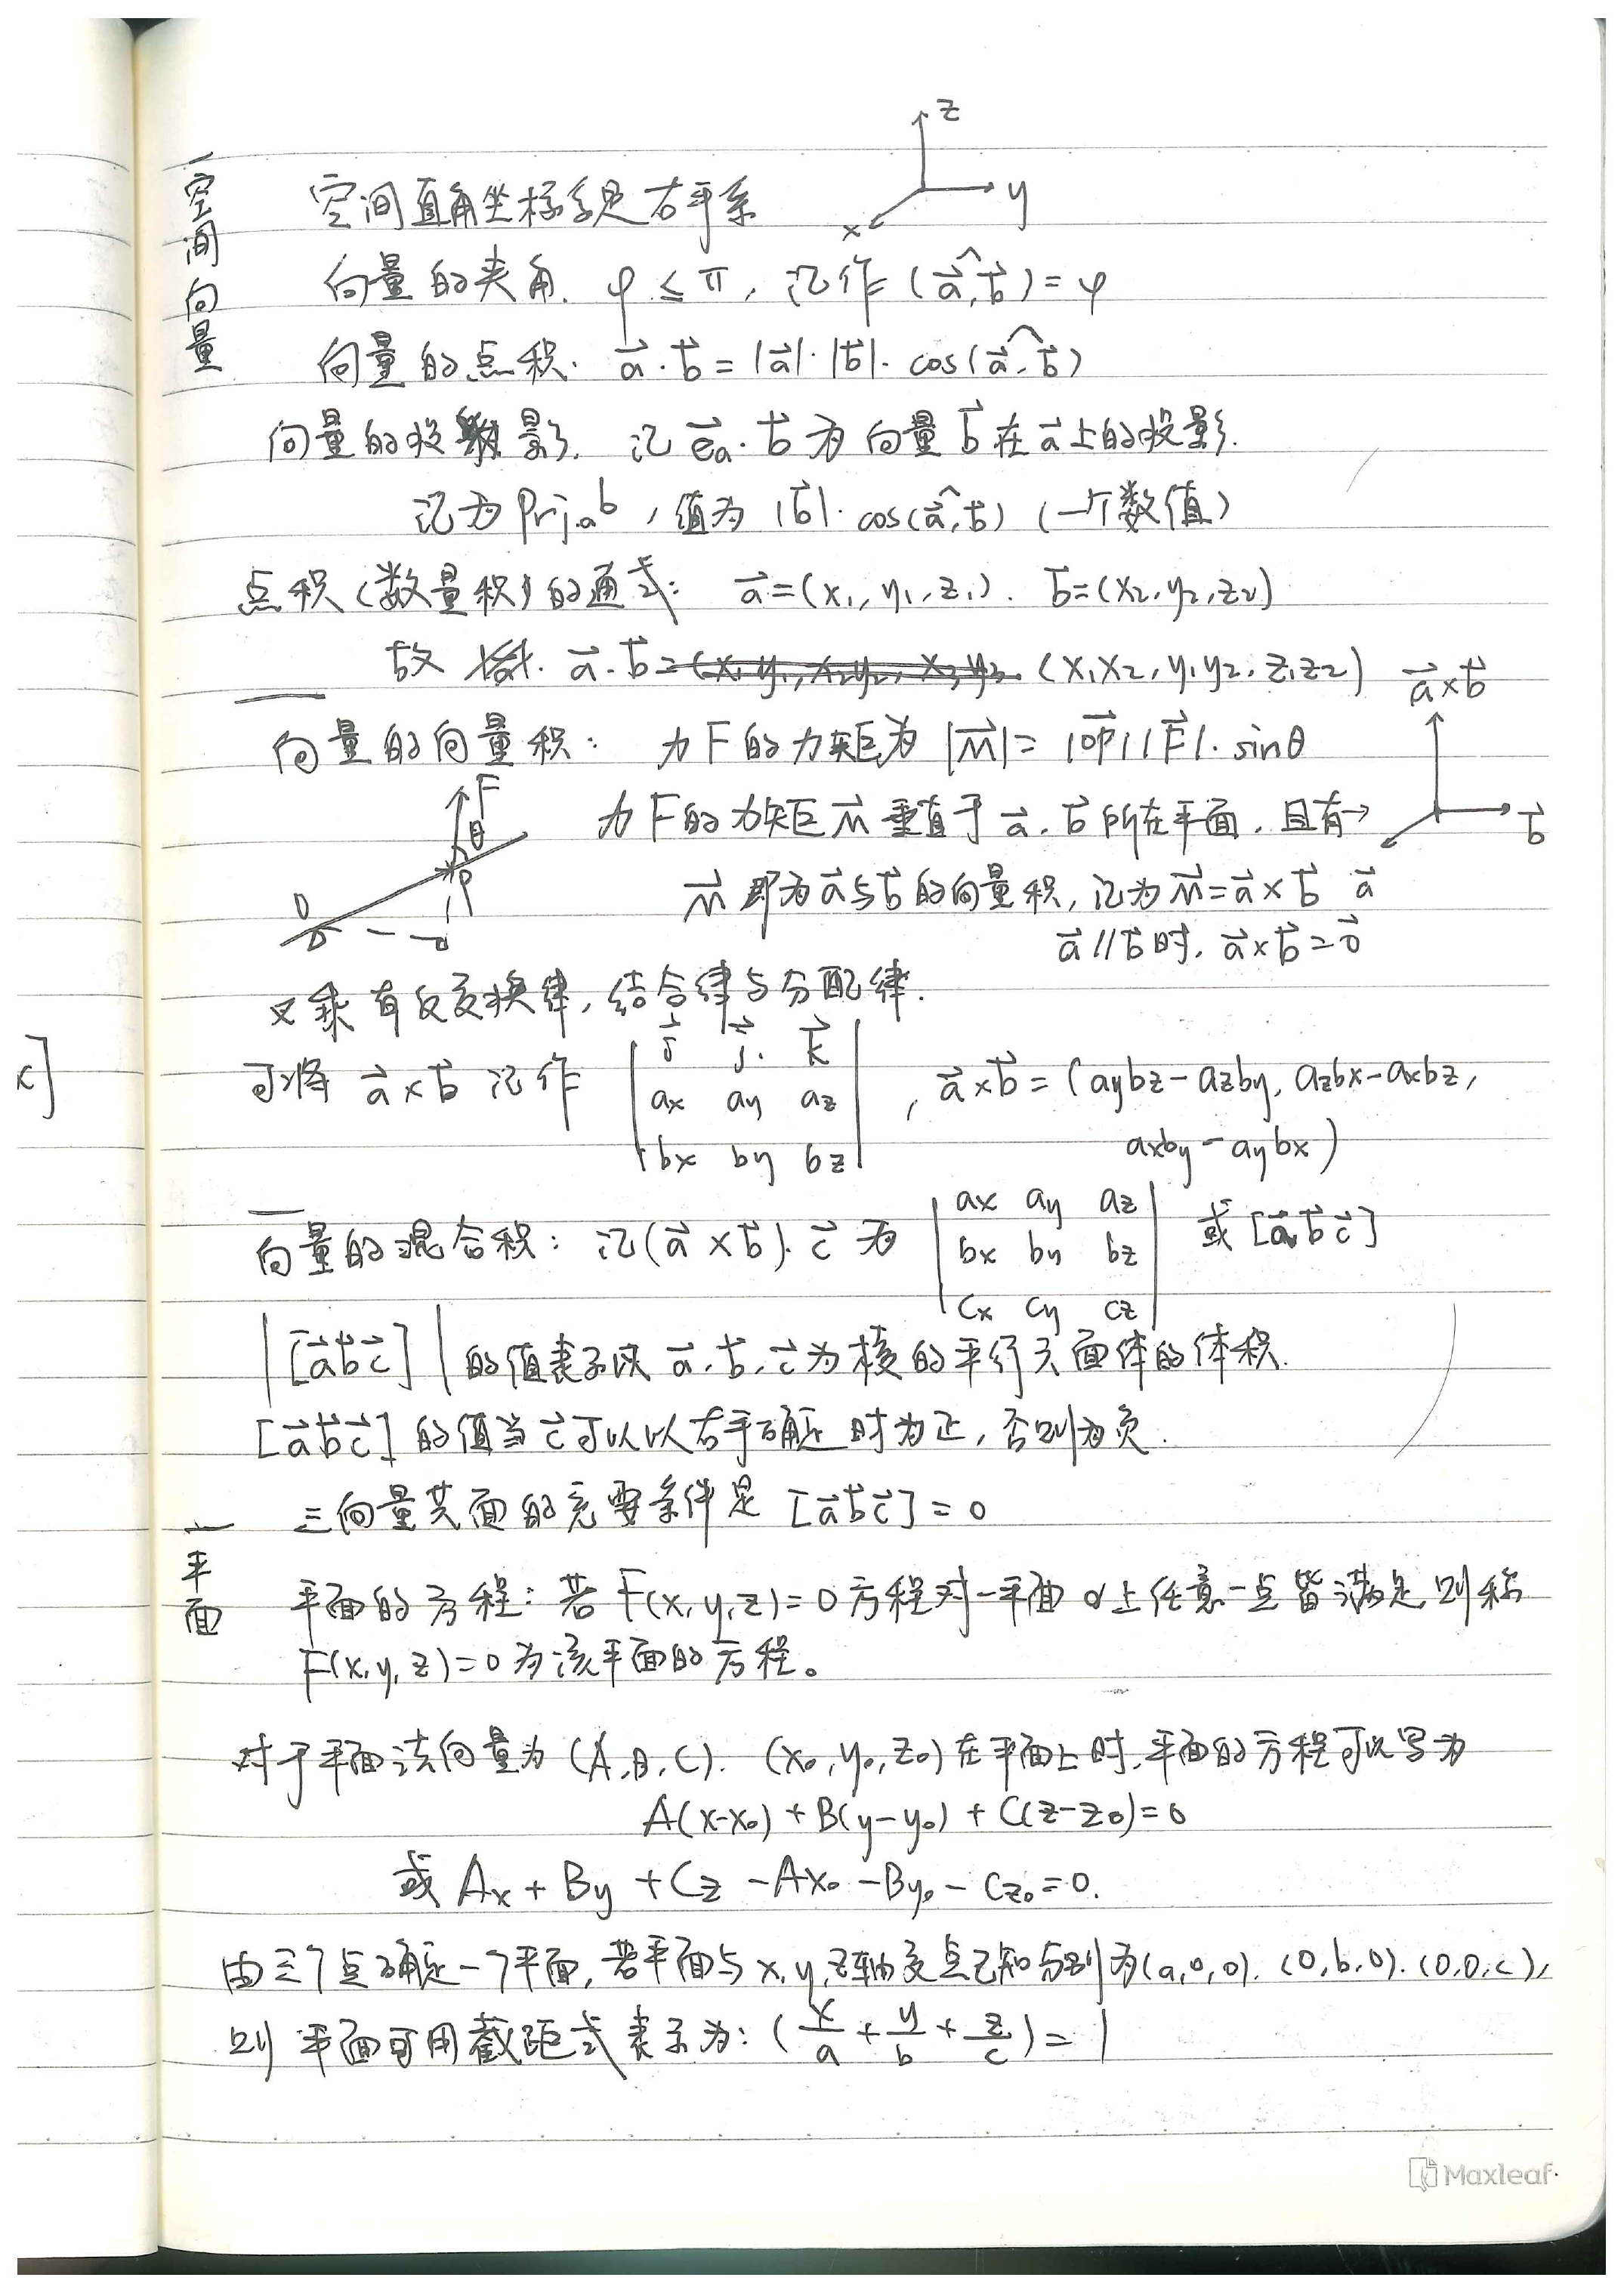 空间向量
z
y
x
空间直角坐标系是右手系
向量的夹角. φ ≤ π, 记作 (a⃗,b⃗) = φ
向量的点积: a⃗·b⃗ = |a⃗|·|b⃗|·cos(a⃗,b⃗)
向量的投影. 记 e⃗a·b⃗ 为向量 b⃗ 在 a⃗ 上的投影.
记为 Prj.ab, 值为 |b⃗|·cos(a⃗,b⃗) (一个数值)
点积(数量积)的通式: a⃗=(x₁,y₁,z₁). b⃗=(x₂,y₂,z₂)
故 a⃗·b⃗ = (x₁x₂, y₁y₂, z₁z₂)
a⃗×b⃗
向量的向量积: 力F的力矩为 |M⃗| = |OP⃗||F⃗|·sinθ
F
θ
力F的力矩 M⃗ 垂直于 a⃗.b⃗ 所在平面, 且有→
b⃗
O
P
M⃗ 即为 a⃗ 与 b⃗ 的向量积, 记为 M⃗=a⃗×b⃗
a⃗
a⃗//b⃗ 时, a⃗×b⃗=0⃗
叉乘有反交换律, 结合律与分配律.
可将 a⃗×b⃗ 记作 | i⃗ j⃗ k⃗ |
| ax ay az | , a⃗×b⃗ = (aybz-azby, azbx-axbz,
| bx by bz | axby-aybx)
x]
| ax ay az |
向量的混合积: 记(a⃗×b⃗)·c⃗ 为 | bx by bz | 或 [a⃗b⃗c⃗]
| cx cy cz |
|[a⃗b⃗c⃗]| 的值表示以 a⃗.b⃗.c⃗ 为棱的平行六面体的体积.
[a⃗b⃗c⃗] 的值当 c⃗ 可以以右手确定时为正, 否则为负.
三向量共面的充要条件是 [a⃗b⃗c⃗] = 0
平面
平面的方程: 若 F(x,y,z)=0 方程对一平面α上任意一点皆满足, 则称
F(x,y,z)=0 为该平面的方程。
对于平面法向量为 (A,B,C). (x₀,y₀,z₀) 在平面上时, 平面的方程可以写为
A(x-x₀) + B(y-y₀) + C(z-z₀) = 0
或 Ax + By + Cz - Ax₀ - By₀ - Cz₀ = 0.
由三个点确定一个平面, 若平面与 x,y,z轴交点已知分别为(a,0,0). (0,b,0). (0,0,c),
则平面可用截距式表示为: (x/a + y/b + z/c) = 1
Maxleaf